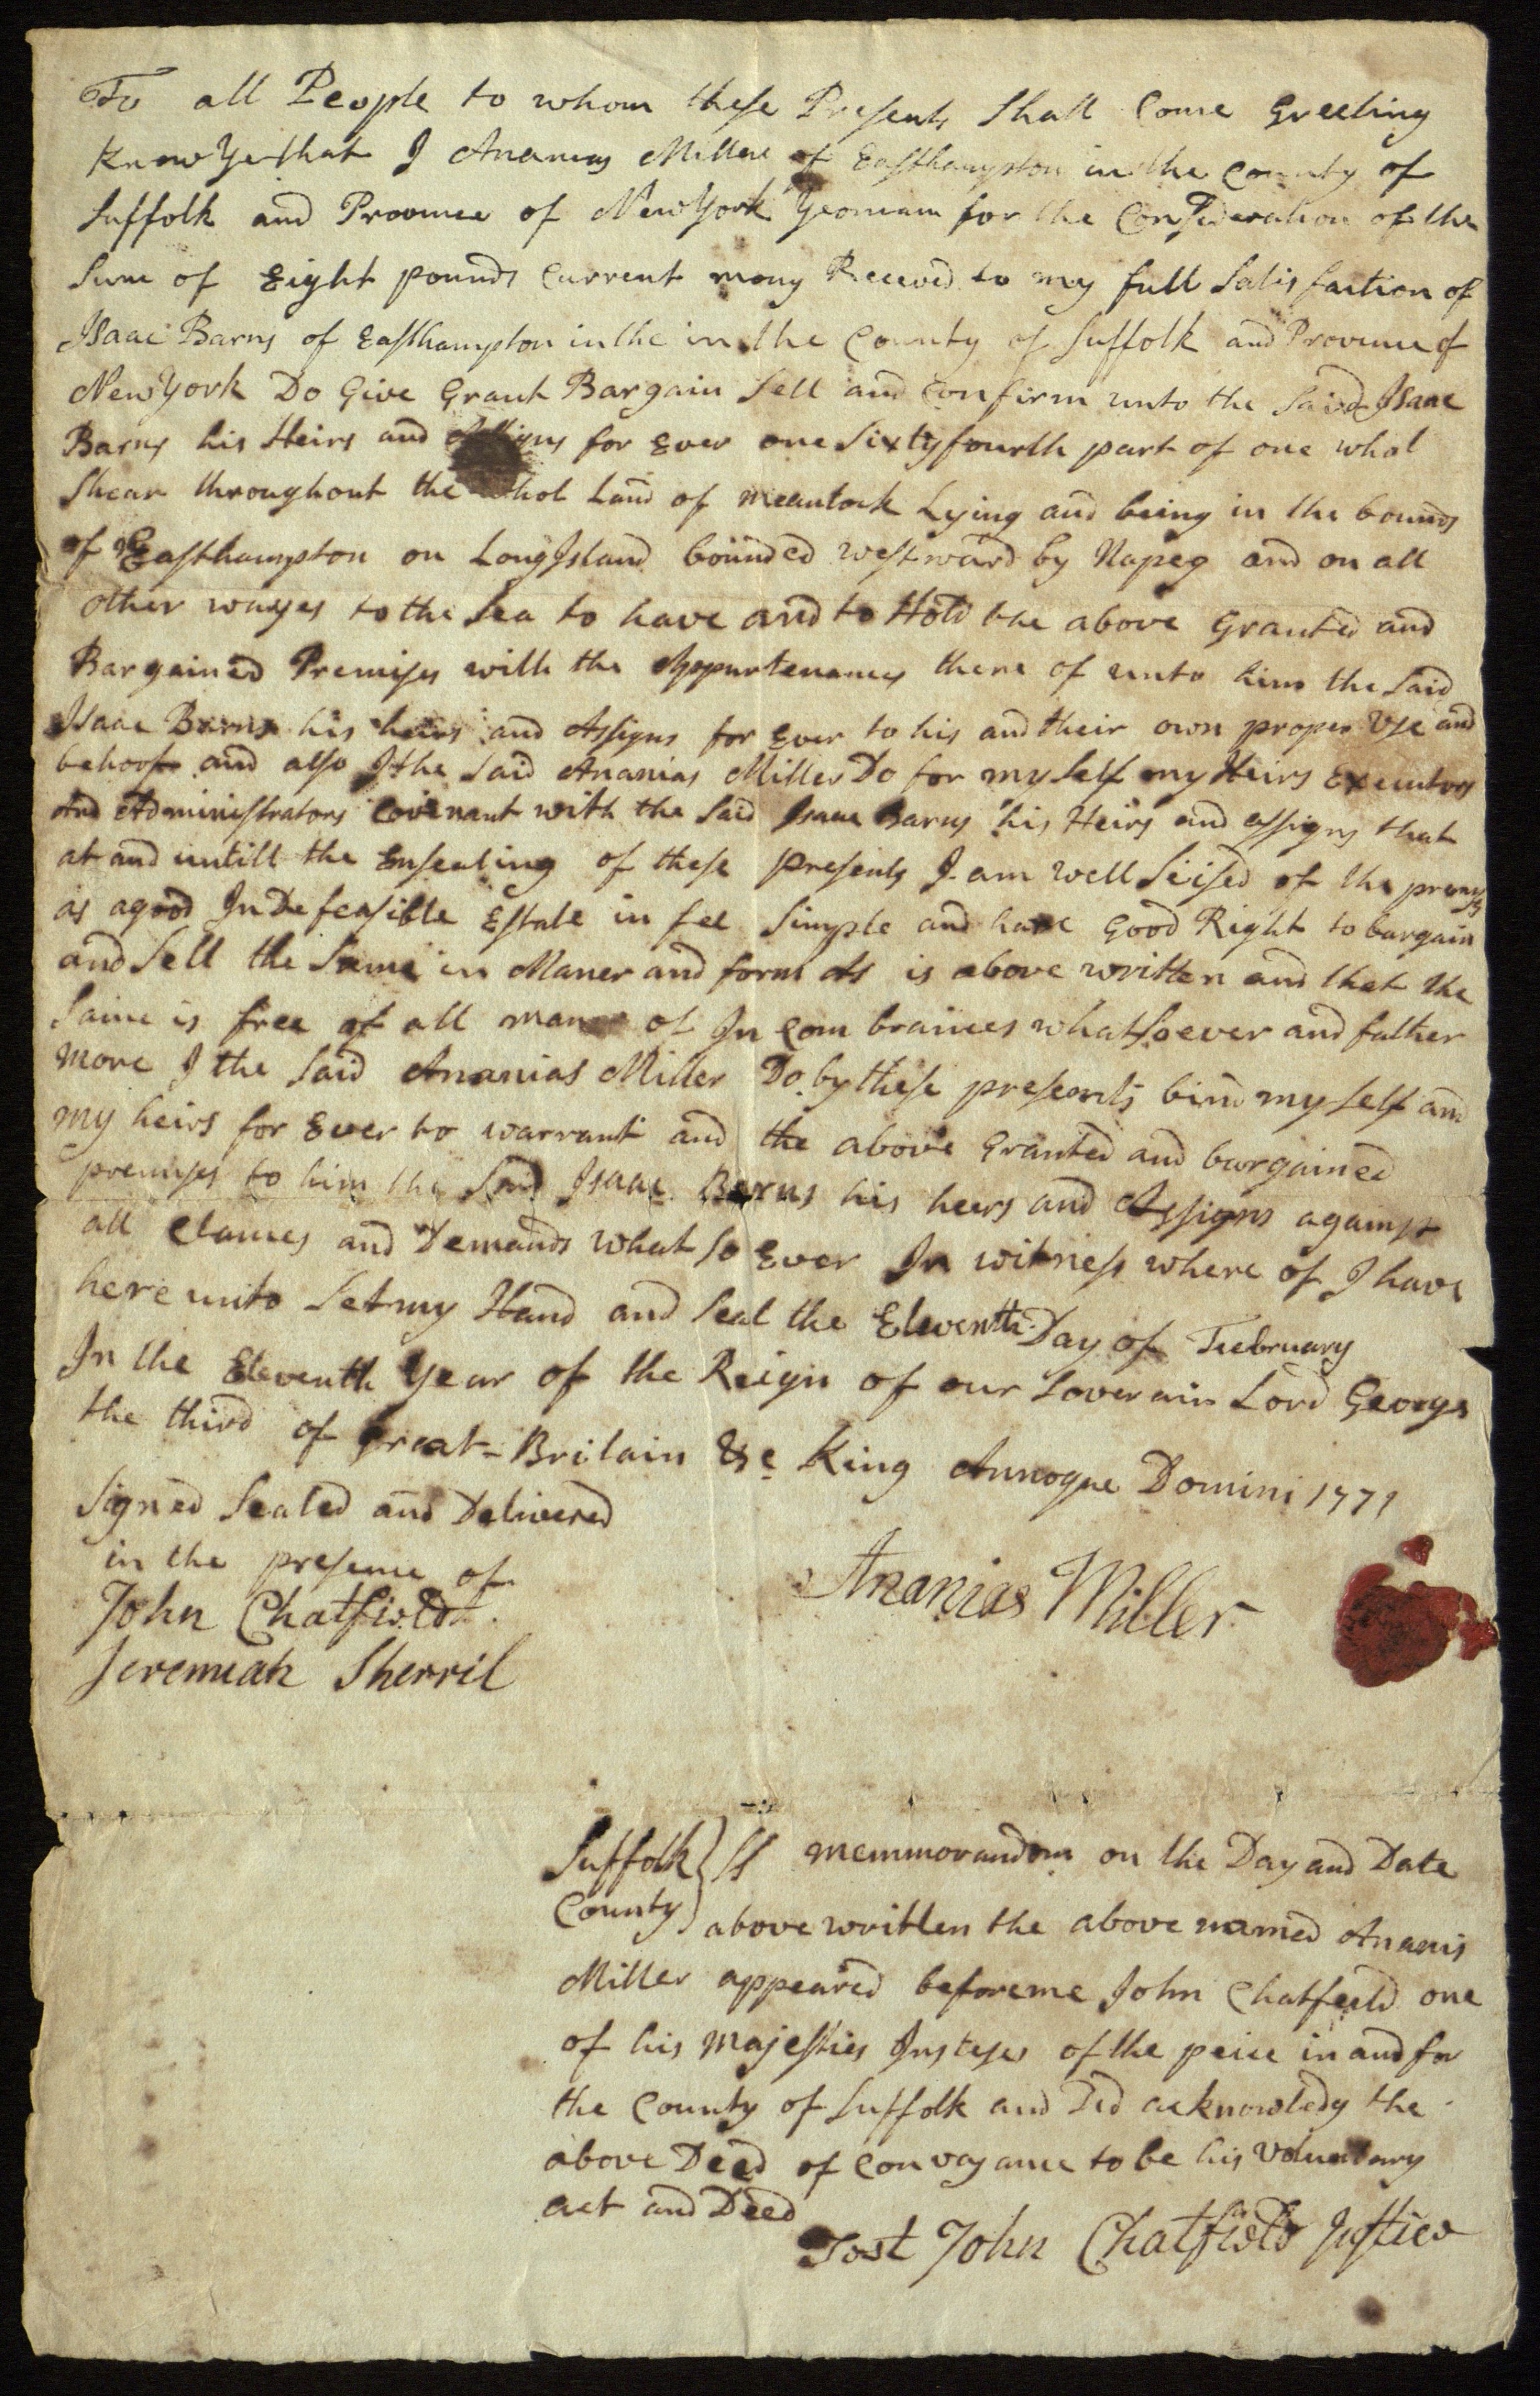 To all People to whom these Presents Shall Come Greeting
Know Ye that I Ananias Miller of Easthampton in the County of
Suffolk and Province of New York Yeoman for the Consideration of the
Sum of Eight pounds Current mony Receved to my full Satisfaction of
Isaac Barns of Easthampton in the in the County of Suffolk and Province of
New York Do Give Grant Bargain Sell and Confirm unto the Said Isaac
Barns his Heirs and Assigns for Ever one Sixty fourth part of one whol
Shear throughout the whol Land of Meantock Lying and being in the bounds
of Easthampton on Long Island bounded westward by Napeg and on all
other wayes to the Sea to have and to Hold the above Granted and
Bargained Premises with the Appurtenances there of unto him the Said
Isaac Barns his heirs and Assigns for Ever to his and their own proper Use and
behoof and also I the Said Ananias Miller Do for my Self my Heirs Executors
And Administrators Covenant with the Said Isaac Barns his Heirs and assigns that
at and untill the Ensealing of these presents I am well Seised of the premises
as a good Indefeasible Estate in fee Simple and have Good Right to bargain
and Sell the Same in Maner and form As is above written and that the
Same is free of all maner of In Com brances whatsoever and father
more I the Said Ananias Miller Do by these presents bind my Self and
my heirs for Ever to warrant and the above Granted and bargained
premises to him the Said Isaac Barns his heirs and Assigns against
all Claimes and Demands what So Ever In witness where of I have
here unto Set my Hand and Seal the Eleventh Day of Feebruary
In the Eleventh Year of the Reign of our Soverain Lord George
the third of Great=Britain &c King Annoque Domini 1771
Signed Sealed and Delivered
in the presence of
John Chatfield
Jeremiah Sherril
Ananias Miller
Suffolk County } Ss memmorandom on the Day and Date
above written the above named Ananis
Miller appeared before me John Chatfeild one
of his Majesties Justeses of the peice in and for
the County of Suffolk and Did acknowledg the
above Deed of Convayance to be his Voluntary
act and Deed
Test John Chatfield Justice